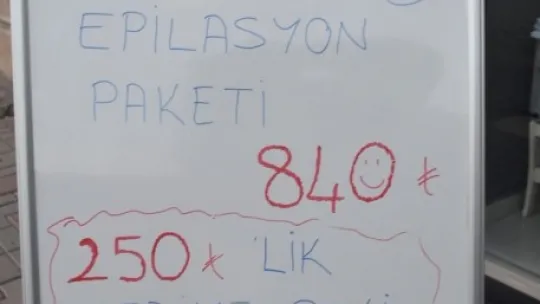 EPİLASYON
PAKETİ
840 ₺
250 ₺ 'LİK